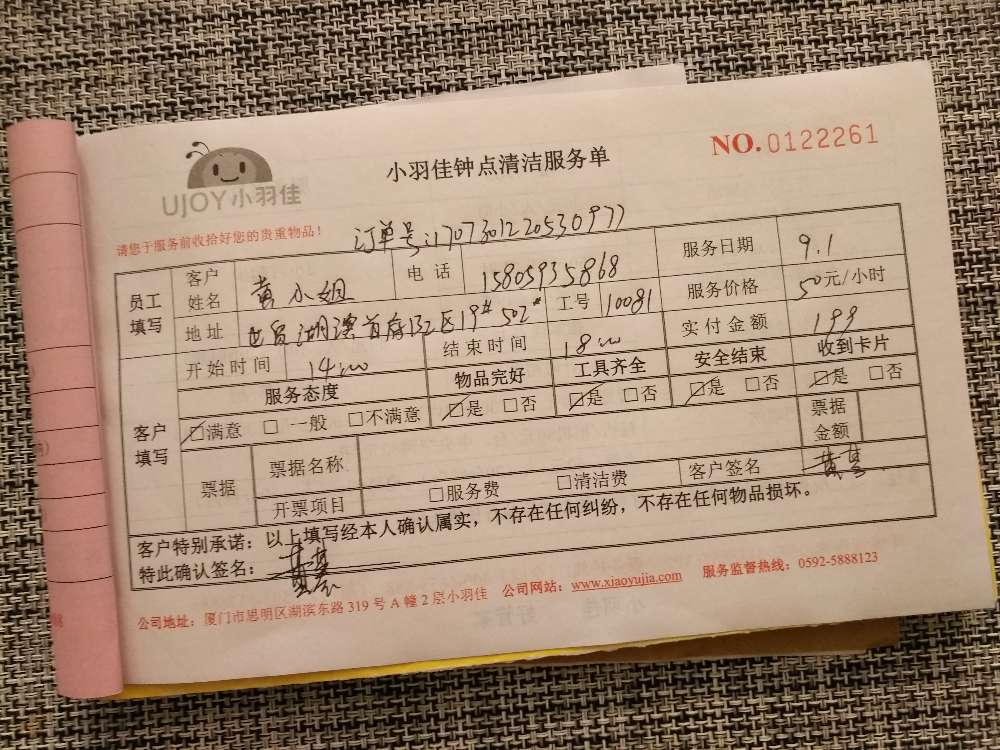 UJOY小羽佳
小羽佳钟点清洁服务单
NO.0122261
请您于服务前收拾好您的贵重物品!
订单号:1707301220530977
员工填写 客户姓名 黄小姐 电话 15805935868 服务日期 9.1
地址 世茂湖滨首府132区19#502# 工号 10081 服务价格 50元/小时
开始时间 14:00 结束时间 18:00 实付金额 199
客户填写 服务态度 物品完好 工具齐全 安全结束 收到卡片
□满意 □一般 □不满意 □是 □否 □是 □否 □是 □否 □是 □否
票据 票据名称 票据金额
开票项目 □服务费 □清洁费 客户签名
客户特别承诺:以上填写经本人确认属实,不存在任何纠纷,不存在任何物品损坏。
特此确认签名:
公司地址:厦门市思明区湖滨东路319号A幢2层小羽佳 公司网站:www.xiaoyujia.com 服务监督热线:0592-5888123